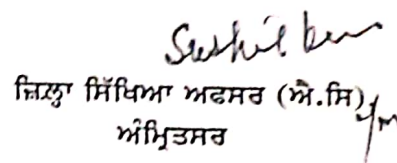 Sushil
ਜ਼ਿਲ੍ਹਾ ਸਿੱਖਿਆ ਅਫਸਰ (ਐ.ਸਿ)
ਅੰਮ੍ਰਿਤਸਰ